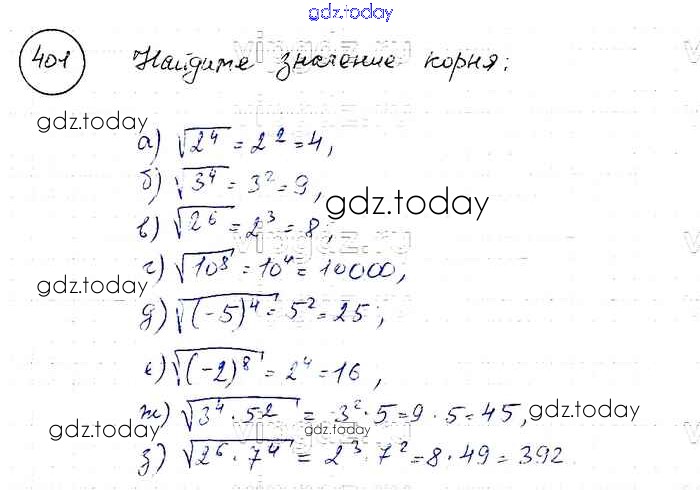 gdz.today
401 Найдите значение корня:
gdz.today
а) √2⁴ = 2² = 4,
б) √3⁴ = 3² = 9,
gdz.today
в) √2⁶ = 2³ = 8,
г) √10⁸ = 10⁴ = 10000,
gdz.today
д) √(-5)⁴ = 5² = 25,
е) √(-2)⁸ = 2⁴ = 16,
ж) √3⁴ · 5² = 3² · 5 = 9 · 5 = 45,
gdz.today
gdz.today
gdz.today
з) √2⁶ · 7⁴ = 2³ · 7² = 8 · 49 = 392